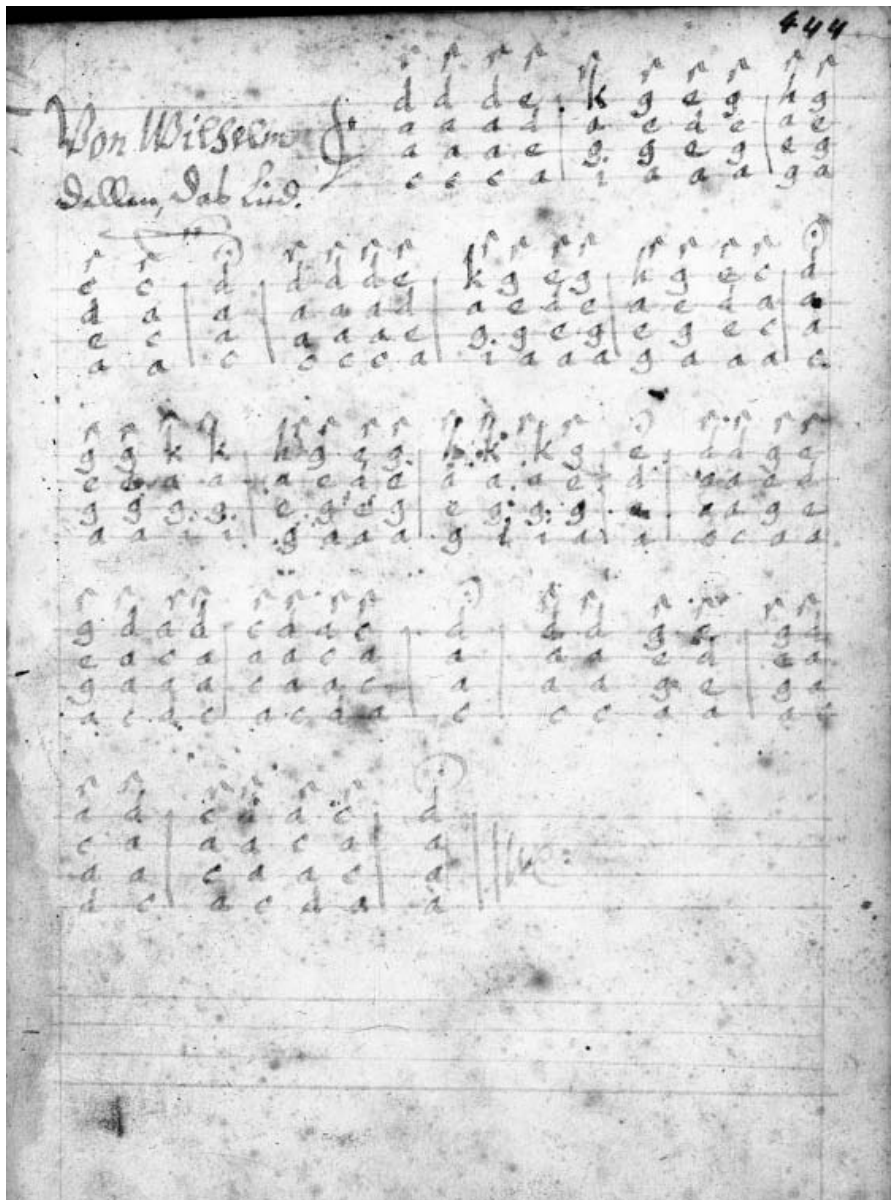 444
Von Wilhelm
Dellen, Das Lied.
d d d e | k g e g | h g
a a a d | a e d e | a e
a a a e | g. g e g | e g
c c c a | i a a a | g a
c c | d | d d d e | k g e g | h g e c | d
d a | a | a a a d | a e d e | a e d a | a
e c | a | a a a e | g. g e g | e g e c | a
a a | c | c c c a | i a a a | g a a a | c
g g k k | h g e g | h k k g | e | d d g e
e e a a | a e d e | a a a e | d | a a e d
g g g. g. | e g e g | e g. g. g | e | a a g e
a a i i | g a a a | g i i a | a | c c a a
g d a d | c a d c | d | d d g e | g d
e a c a | a a c a | a | a a e d | e a
g a a a | c a a c | a | a a g e | g a
a c d c | a c d a | c | c c a a | a c
a d | c a d c | d
c a | a a c a | a
a a | c a a c | a
d c | a c d a | a